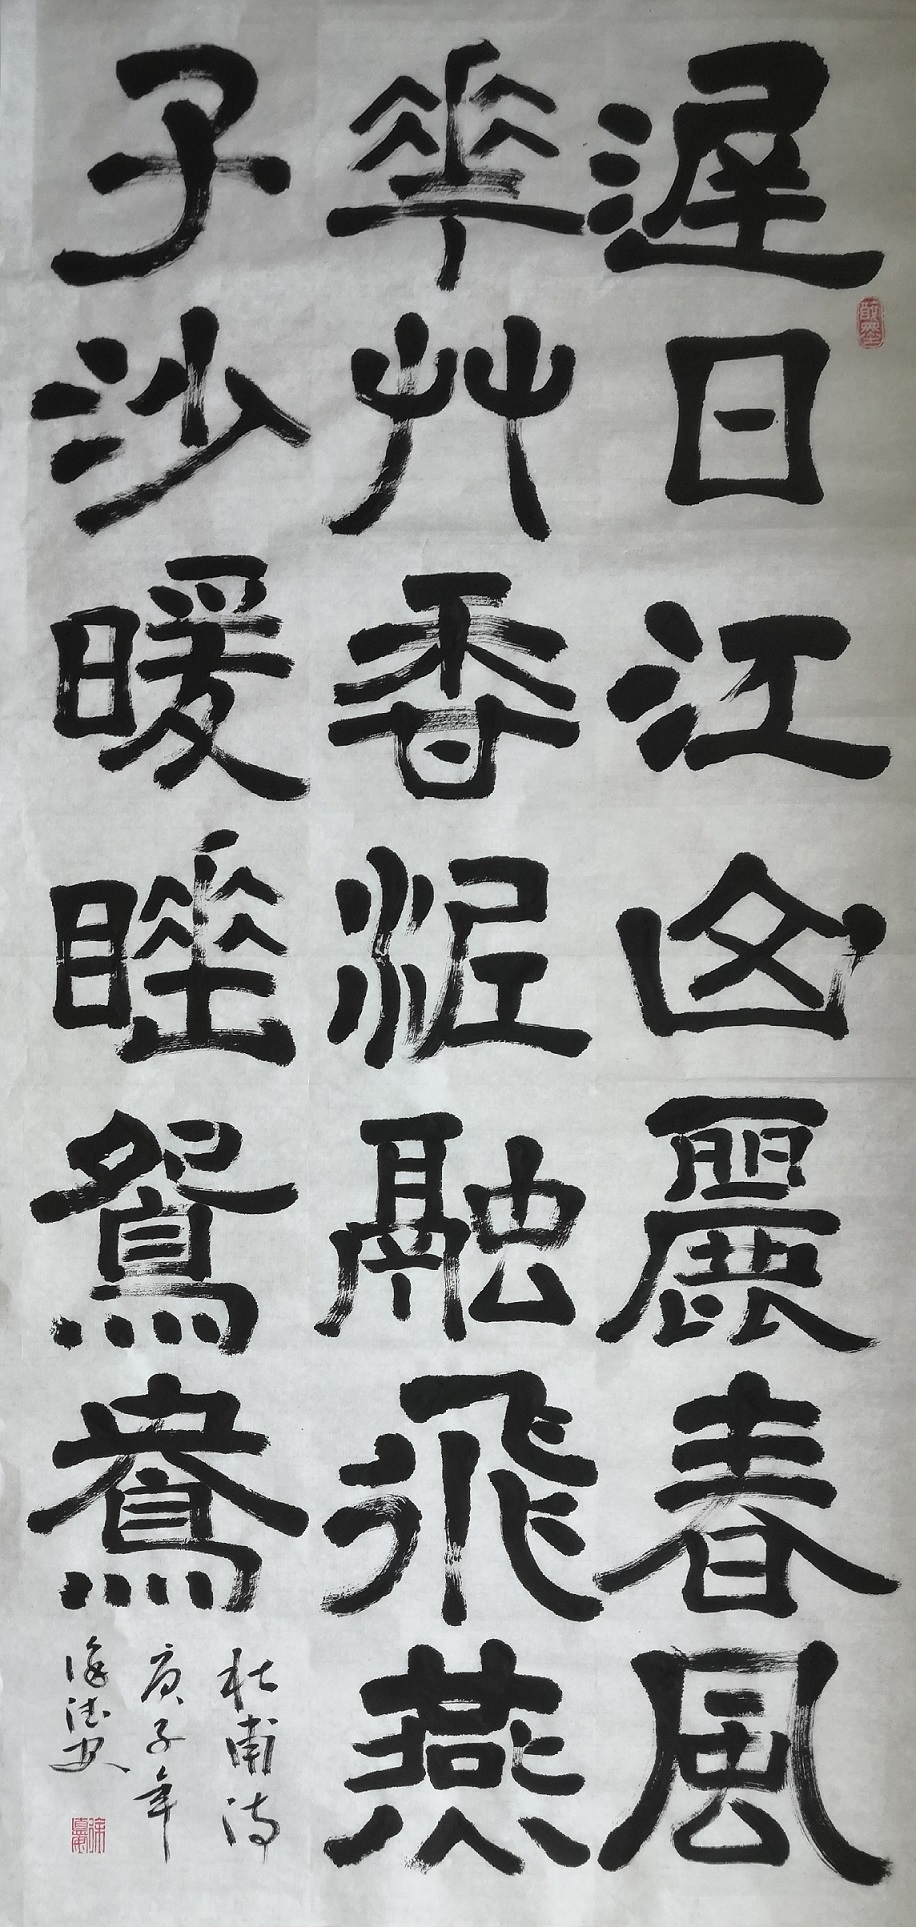 遲日江山麗春風
華艸香泥融飛燕
子沙暖睡鴛鴦
杜甫诗
庚子年